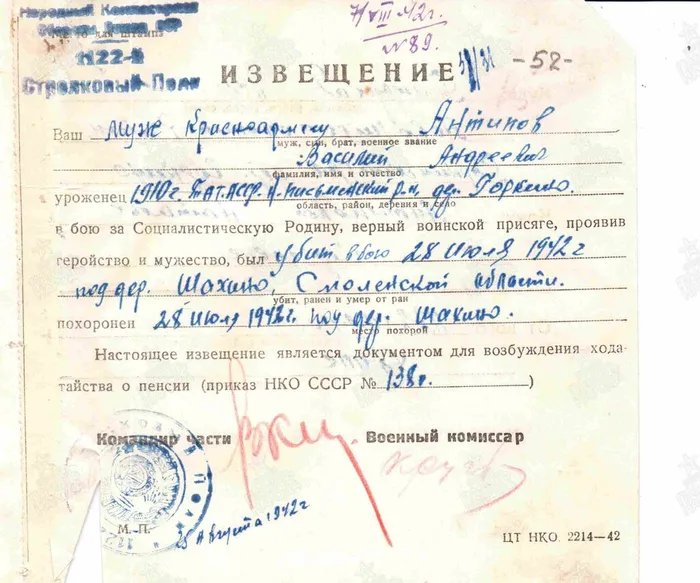 Народный Комиссариат
Обороны Союза ССР
Место для штампа
1122-й
Стрелковый Полк
7/VIII 42г.
№ 89.
ИЗВЕЩЕНИЕ
-52-
Ваш муж Красноармеец Антипов
муж, сын, брат, военное звание
Василий Андреевич
фамилия, имя и отчество
уроженец 1910г. ТатАССР, Письменский р-н, дер. Горкино.
область, район, деревня и село
в бою за Социалистическую Родину, верный воинской присяге, проявив
геройство и мужество, был убит в бою 28 Июля 1942г
под дер. Шахино, Смоленской области.
убит, ранен и умер от ран
похоронен 28 Июля 1942г. под дер. Шахино.
место похорон
Настоящее извещение является документом для возбуждения хода-
тайства о пенсии (приказ НКО СССР № 138г. )
Командир части
Военный комиссар
М. П.
25 Августа 1942г
ЦТ НКО. 2214—42